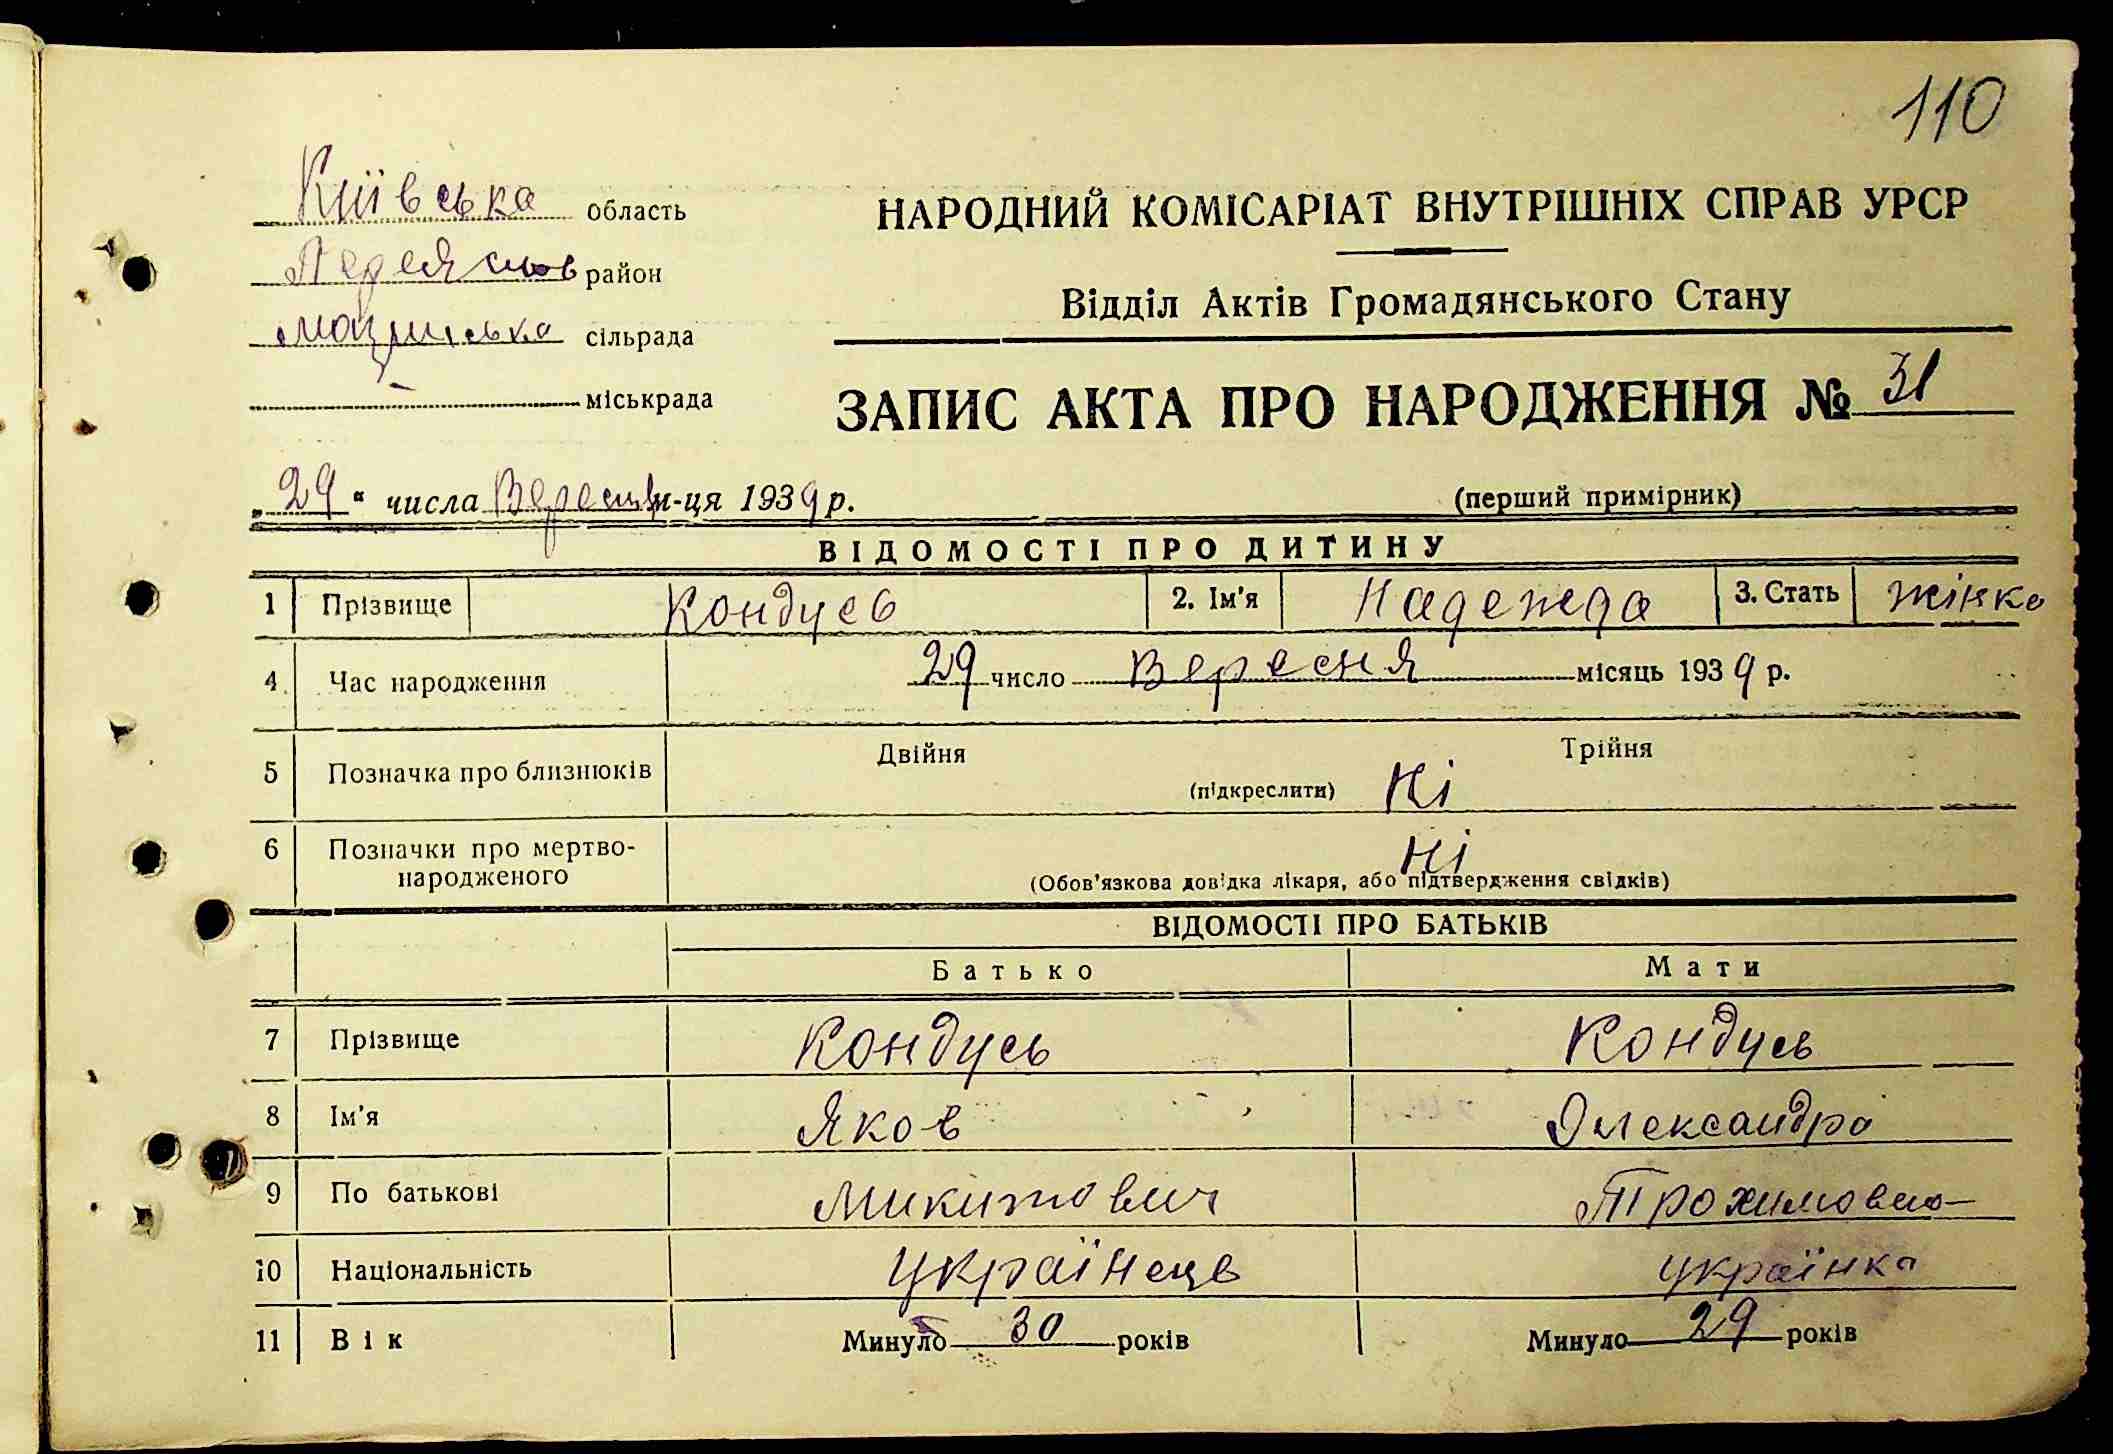 110
Київська область
НАРОДНИЙ КОМІСАРІАТ ВНУТРІШНІХ СПРАВ УРСР
район
Відділ Актів Громадянського Стану
сільрада
міськрада
ЗАПИС АКТА ПРО НАРОДЖЕННЯ № 31
„29“ числа м-ця 1939 р.
(перший примірник)
ВІДОМОСТІ ПРО ДИТИНУ
1 Прізвище Кондусь 2. Ім'я Надежда 3. Стать жінка
4 Час народження 29 число Вересня місяць 1939 р.
5 Позначка про близнюків Двійня (підкреслити) Ні Трійня
6 Позначки про мертво-
народженого Ні
(Обов'язкова довідка лікаря, або підтвердження свідків)
ВІДОМОСТІ ПРО БАТЬКІВ
Батько Мати
7 Прізвище Кондусь Кондусь
8 Ім'я Яков Олександра
9 По батькові Микитович Трохимовна
10 Національність Українець українка
11 Вік Минуло 30 років Минуло 29 років